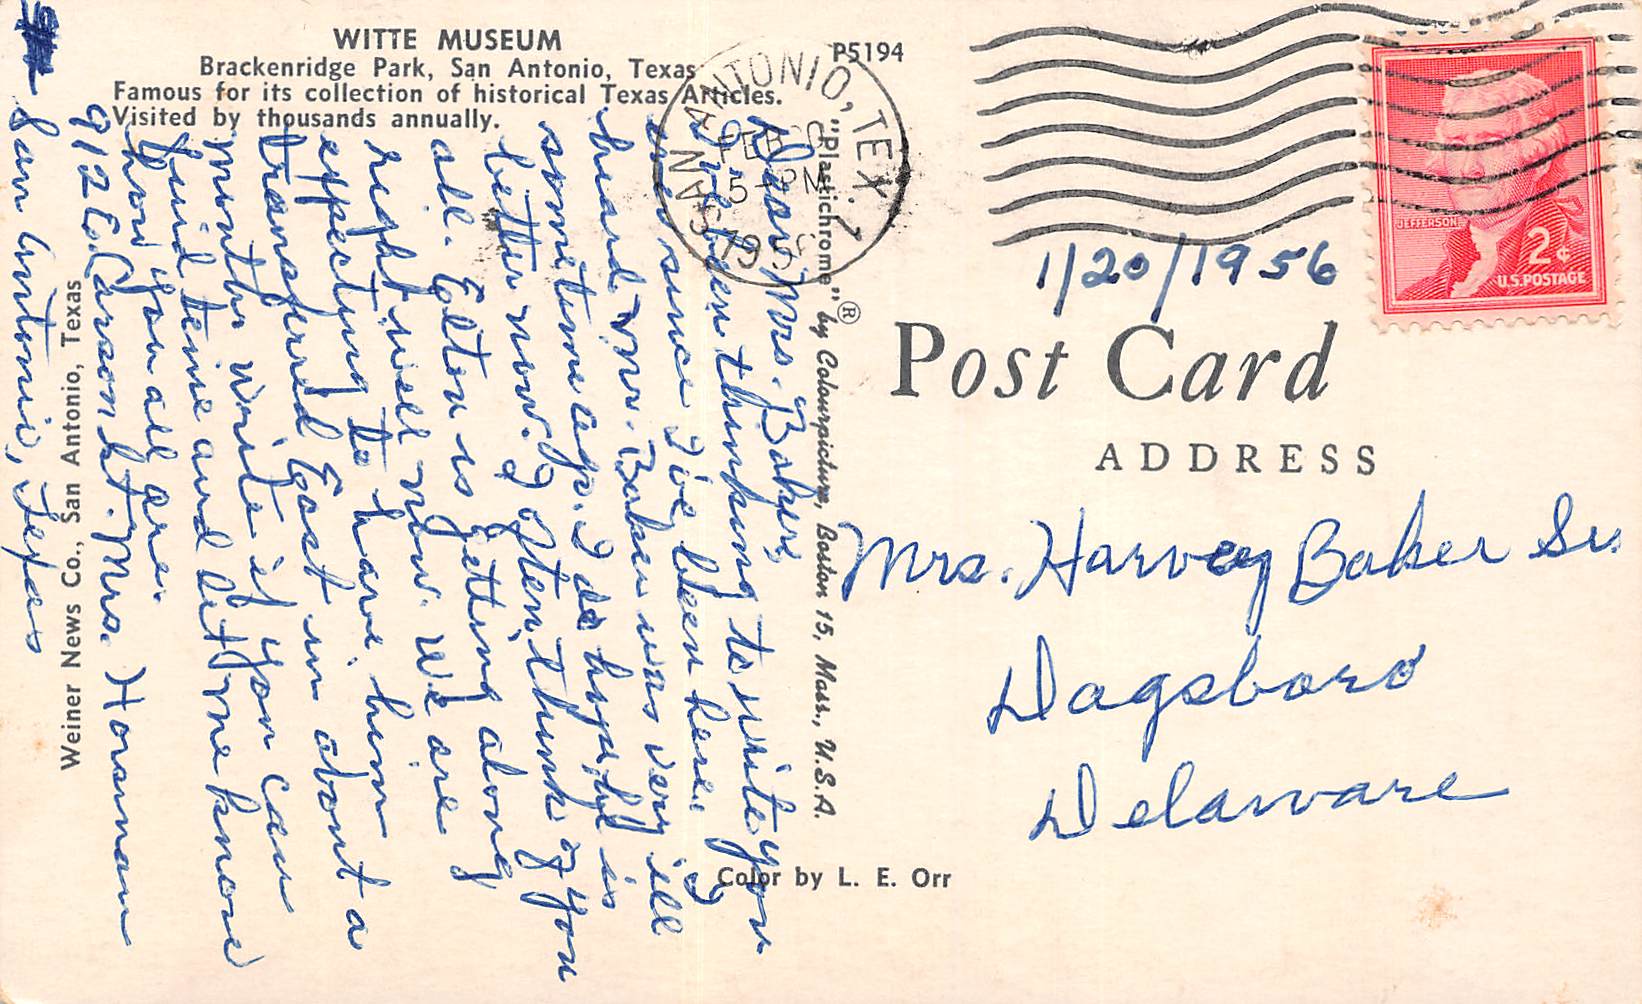 WITTE MUSEUM
Brackenridge Park, San Antonio, Texas
Famous for its collection of historical Texas Articles.
Visited by thousands annually.
P5194
ANTONIO, TEX.
5 - PM
1956
JEFFERSON
2¢
U.S. POSTAGE
1/20/1956
Post Card
ADDRESS
Mrs. Harvey Baker Sr.
Dagsboro
Delaware
"Plastichrome"® by Colourpicture, Boston 15, Mass., U.S.A.
Color by L. E. Orr
Weiner News Co., San Antonio, Texas
Dear Mrs. Baker,
I've been thinking to write you
ever since I've been here. I
heard Mr. Baker was very ill
sometime ago. I do hope he is
better now. I often think of you
all. Elton is getting along
right well now. We are
expecting to have him
transferred East in about a
month or write if you can
find time and let me know
how you all are.
912 E. Carson St. Mrs. Horsman
San Antonio, Texas